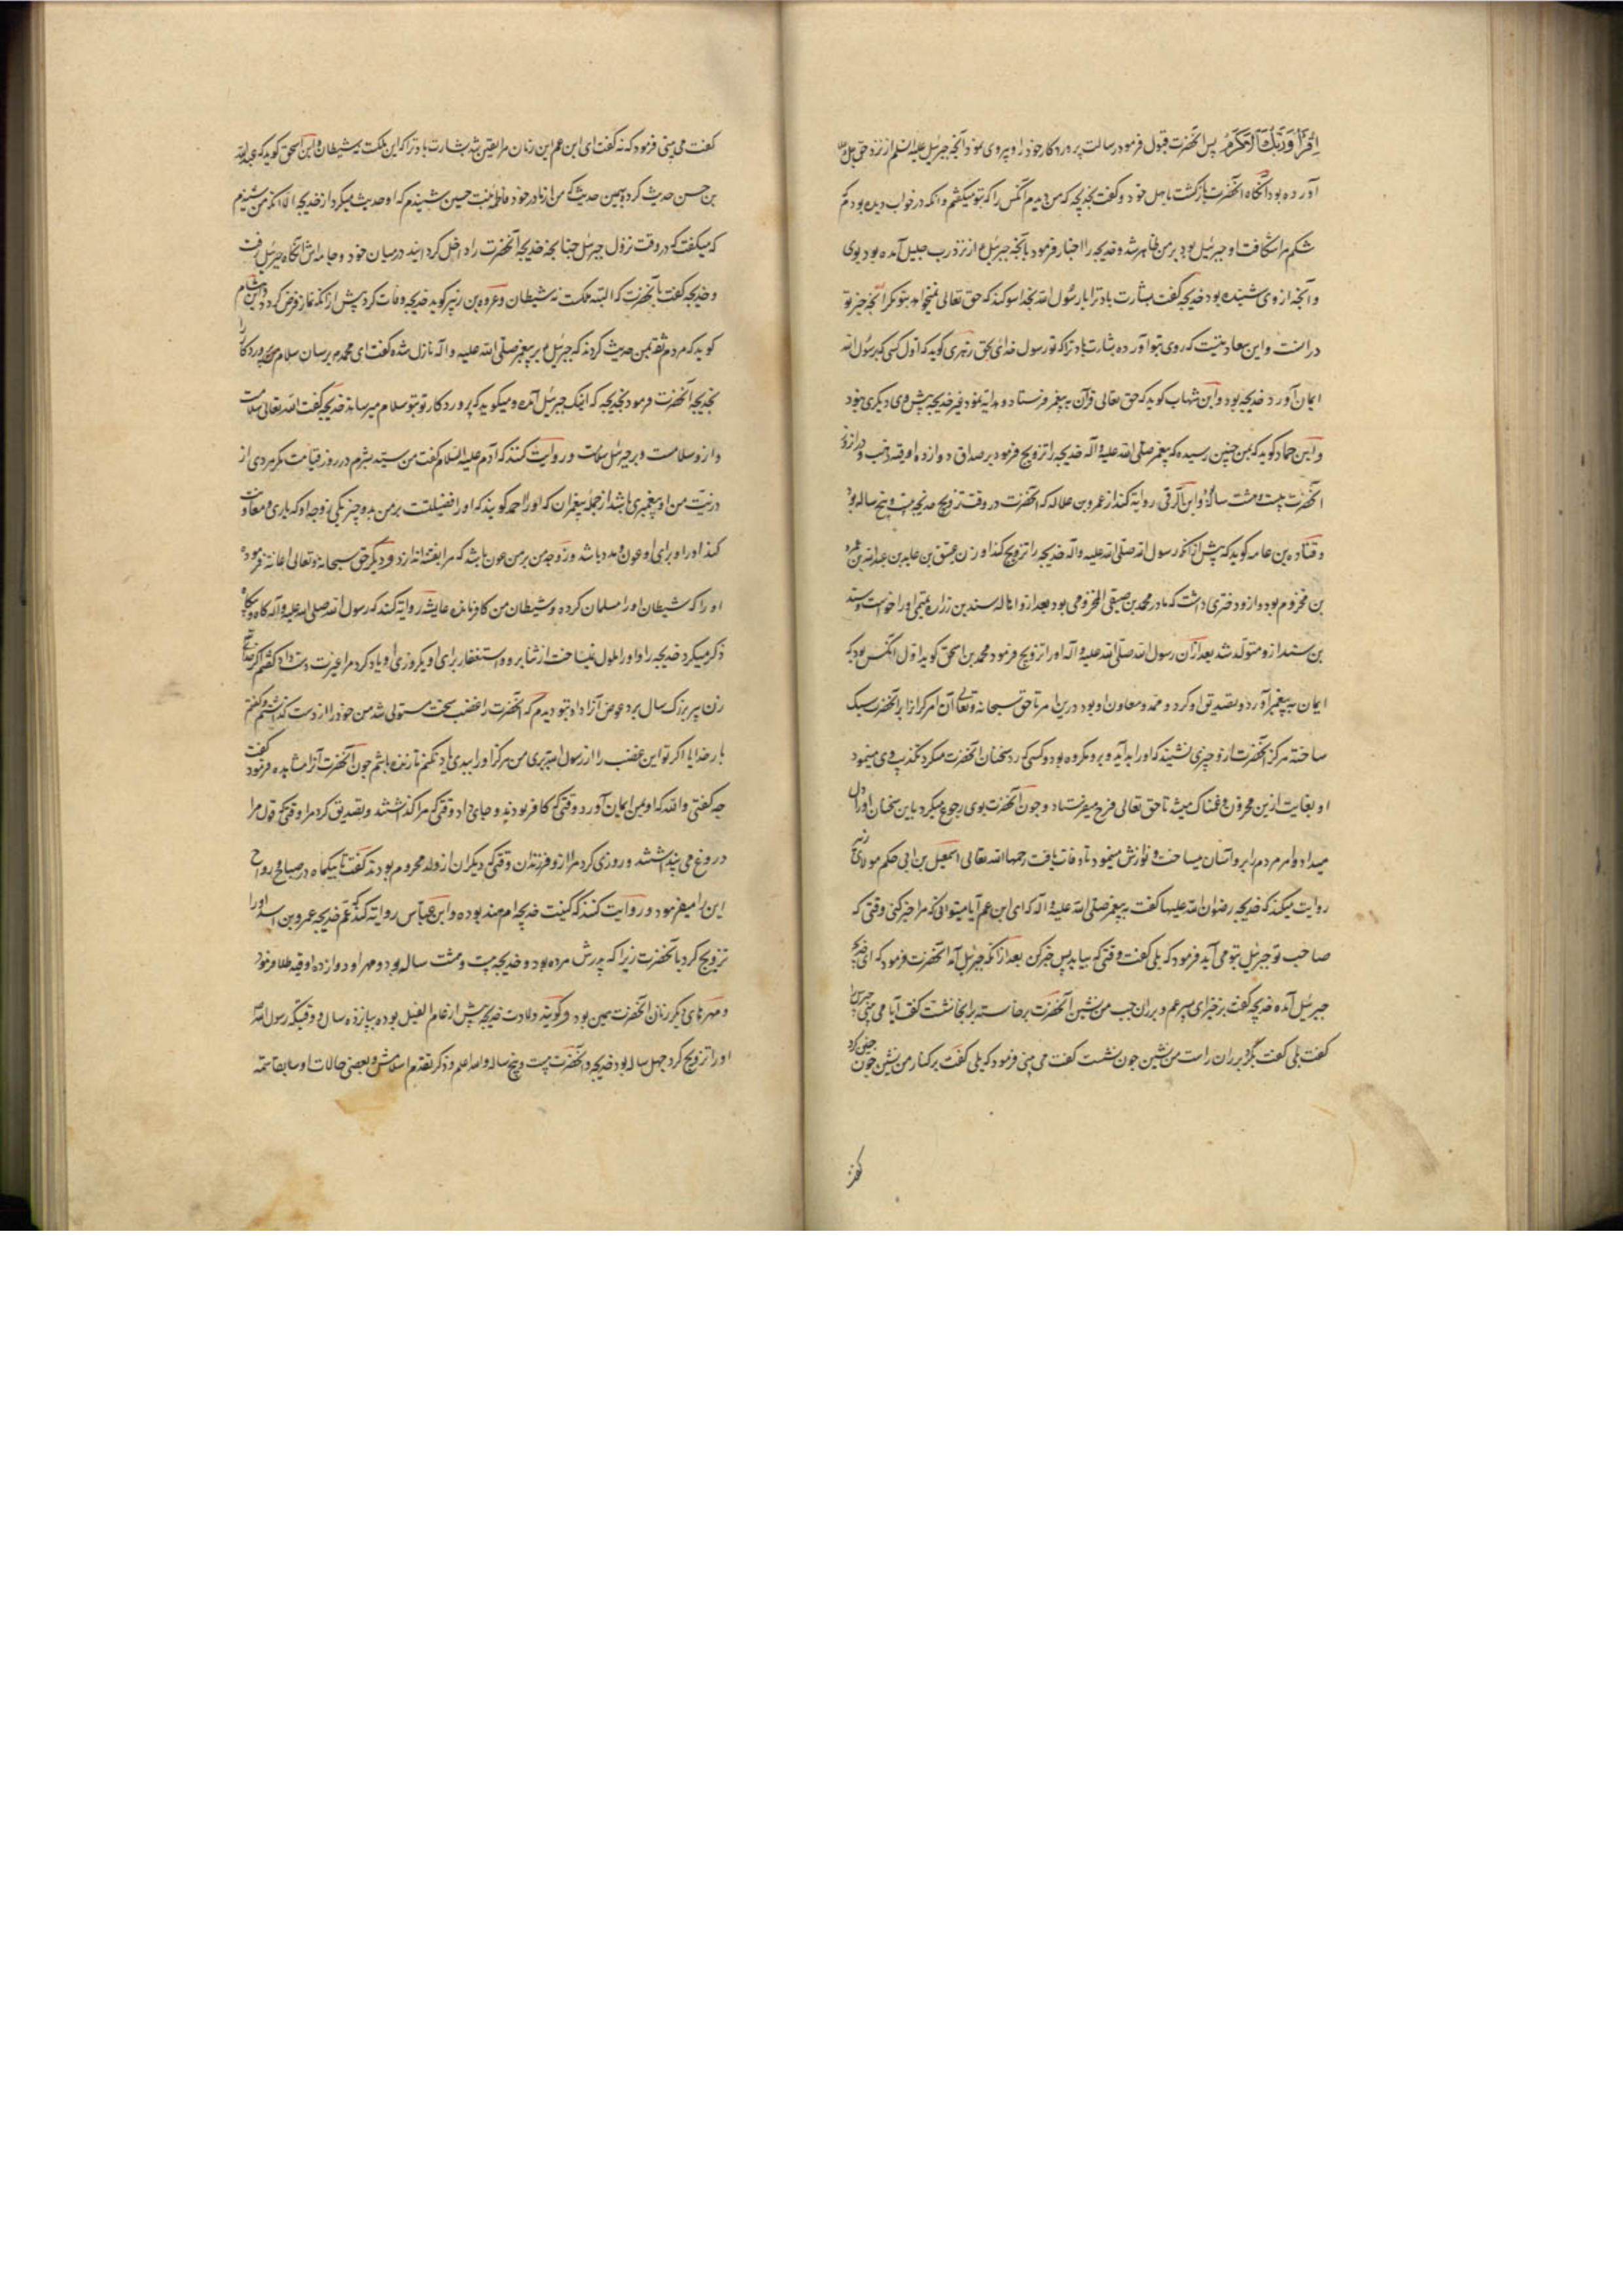 اِقْرَأْ وَرَبُّكَ الْاَكْرَمُ پس آنحضرت قبول فرمود رسالت پروردكار خود را و پیروی نمود آنچه جبرئیل علیه السلم از نزد حق
آورده بود آنكاه آنحضرت بازكشت باهل خود و كفت بخدیجه كه من دیدم آنكس را كه بتو میكفتم و آنكه در خواب دیده بودم كه
شكم مرا شكافت او جبرئیل بود بر من ظاهر شد و خدیجه را اخبار فرمود بآنچه جبرئیل ع از نزد رب جلیل آمده بود بوی
و آنچه از وی شنیده بود خدیجه كفت بشارت باد ترا یا رسول الله بخدا سوكند كه حق تعالی نمیخواهد بتو مكر آنچه خیر تو
در آنست و این سعادتیست كه روی بتو آورده بشارت باد ترا كه تو رسول خدای بحق زهری كوید كه اول كسی كه برسول الله
ایمان آورد خدیجه بود و ابن شهاب كوید كه حق تعالی قرآن به پیغمبر فرستاد و هدایه نمود و غیر خدیجه پیش وی دیكری نبود
و ابن حماد كوید كه بمن چنین رسیده كه پیغمبر صلّی الله علیه و آله خدیجه را تزویج فرمود بر صداق دوازده اوقیه ذهب و در آنروز
آنحضرت بیست و هشت ساله و ابن البرقی روایه كند از عمرو بن علاله كه آنحضرت در وقت تزویج خدیجه بیست و پنج ساله بود
و قتاده بن عامه كوید كه پیش از آنكه رسول الله صلی الله علیه و آله خدیجه را تزویج كند او زن عتیق بن عابد بن عبد الله بن عمر
بن مخزوم بود و ازو دختری داشت كه مادر محمد بن صیفی المخزومی بود بعد ازو اباله هند بن زراره تمیمی او را خواست و هند
بن هند ازو متولد شد بعد از آن رسول الله صلی الله علیه و آله او را تزویج فرمود محمد بن اسحق كوید اول آنكس بود كه
ایمان به پیغمبر آورد و تصدیق او كرد و ممد و معاون او بود درین امر تا حق سبحانه و تعالی آن امر كران را بر آنحضرت سبك
ساخته هركز آنحضرت ازو چیزی نشنید كه او را بد آید و برو مكروه بود و كسی كه رد سخنان آنحضرت میكرد و تكذیب وی مینمود
او بغایت ازین محزون و غمناك میشد تا حق تعالی فرح میفرستاد و چون آنحضرت بوی رجوع میكرد باین سخنان او را دل
میداد و امر مردم را برو آسان میساخت و نوازش مینمود تا وفات یافت رحمها الله تعالی اسمعیل بن ابی حكم مولای زبیر
روایت میكند كه خدیجه رضوان الله علیها كفت به پیغمبر صلی الله علیه و آله كه ای ابن عم آیا میتوانی كه مرا خبر كنی وقتی كه
صاحب تو جبرئیل بتو می آید فرمود كه بلی كفت وقتی كه بیاید پس خبر كن بعد از آنكه جبرئیل آمد آنحضرت فرمود كه ای خدیجه
جبرئیل آمده خدیجه كفت برخیز ای پسر عم و بر ران چپ من نشین آنحضرت برخاسته بر آنجا نشست كفت آیا می بینی جبرئیل را
كفت بلی كفت بكرد بر ران راست من نشین چون نشست كفت می بینی فرمود كه بلی كفت بر كنار من نشین چون چنین كرد
كفت
كفت می بینی فرمود كه نه كفت ای ابن عم این زمان مرا یقین شد بشارت باد ترا كه این ملكست نه شیطان و ابن اسحق كوید كه عبد الله
بن حسن حدیث كرد بهمین حدیث كه من از مادر خود فاطمه بنت حسین شنیدم كه او حدیث میكرد از خدیجه الا آنكه من شنیدم
كه میكفت كه در وقت نزول جبرئیل خدیجه آنحضرت را داخل كردانید در میان خود و جامه اش آنكاه جبرئیل رفت
و خدیجه كفت بآنحضرت كه البته ملكست نه شیطان و عروه بن زبیر كوید خدیجه وفات كرد پیش از آنكه نماز فرض كردد و ابن هشام
كوید كه مردم ثقه بمن حدیث كردند كه جبرئیل ع بر پیغمبر صلی الله علیه و آله نازل شده كفت ای محمد برسان سلام پروردكار را
بخدیجه آنحضرت فرمود بخدیجه كه اینك جبرئیل آمده و میكوید كه پروردكار تو بتو سلام میرساند خدیجه كفت الله تعالی سلامست
و ازو سلامست و بر جبرئیل سلامت و روایت كنند كه آدم علیه السلام كفت من سید بشرم در روز قیامت مكر مردی از
ذریت من او پیغمبری باشد از جمله پیغمبران كه او را احمد كویند كه او را فضیلتست بر من بدو چیز یكی زوجه او كه یاری و معاونت
كند او را و برای او عون و مدد باشد و زوجه من بر من عون باشد كه مرا بفتنه اندازد و دیكر حق سبحانه و تعالی اعانه فرموده
او را كه شیطان او را مسلمان كرده و شیطان من كافر مانده عایشه روایه كند كه رسول الله صلی الله علیه و آله كاه و بیكاه
ذكر میكرد خدیجه را و او را ملول نمیساخت از ثنا برو و استغفار برای او یكروزی او یاد كرد مرا غیرت دست داد كفتم اكر خدای تعالی
زن پیر بزرك سال برد عوض آنرا داد بتو دیدم كه آنحضرت را غضب سخت مستولی شد من خود را از دست كذاشتم و كفتم
بار خدایا اكر تو این غضب را از رسول ببری من هركز او را ببدی یاد نكنم تا زنده باشم چون آنحضرت آنرا مشاهده فرمود كفت
چه كفتی والله كه او بمن ایمان آورد وقتی كه كافر بودند و جای داد وقتی كه مرا كذاشتند و تصدیق كرد مرا وقتی كه قول مرا
دروغ می پنداشتند و روزی كرد مرا ازو فرزندان وقتی كه دیكران از ولد محروم بودند كفت تا یكماه در صباح و رواح
این را میفرمود و روایت كنند كه كنیت خدیجه ام هند بوده و ابن عباس روایه كند كه عمّ خدیجه عمرو بن اسد او را
تزویج كرد بآنحضرت زیرا كه پدرش مرده بود و خدیجه بیست و هشت ساله بود و مهر او دوازده اوقیه طلا فرمود
و مهرهای دیكر زنان آنحضرت همین بود و كویند ولادت خدیجه پیش از عام الفیل بوده بپانزده سال و وقتیكه رسول الله
او را تزویج كرد چهل ساله بود خدیجه و آنحضرت بیست و پنج ساله و الله اعلم و ذكر تقدم اسلامش و بعضی حالات او سابقا